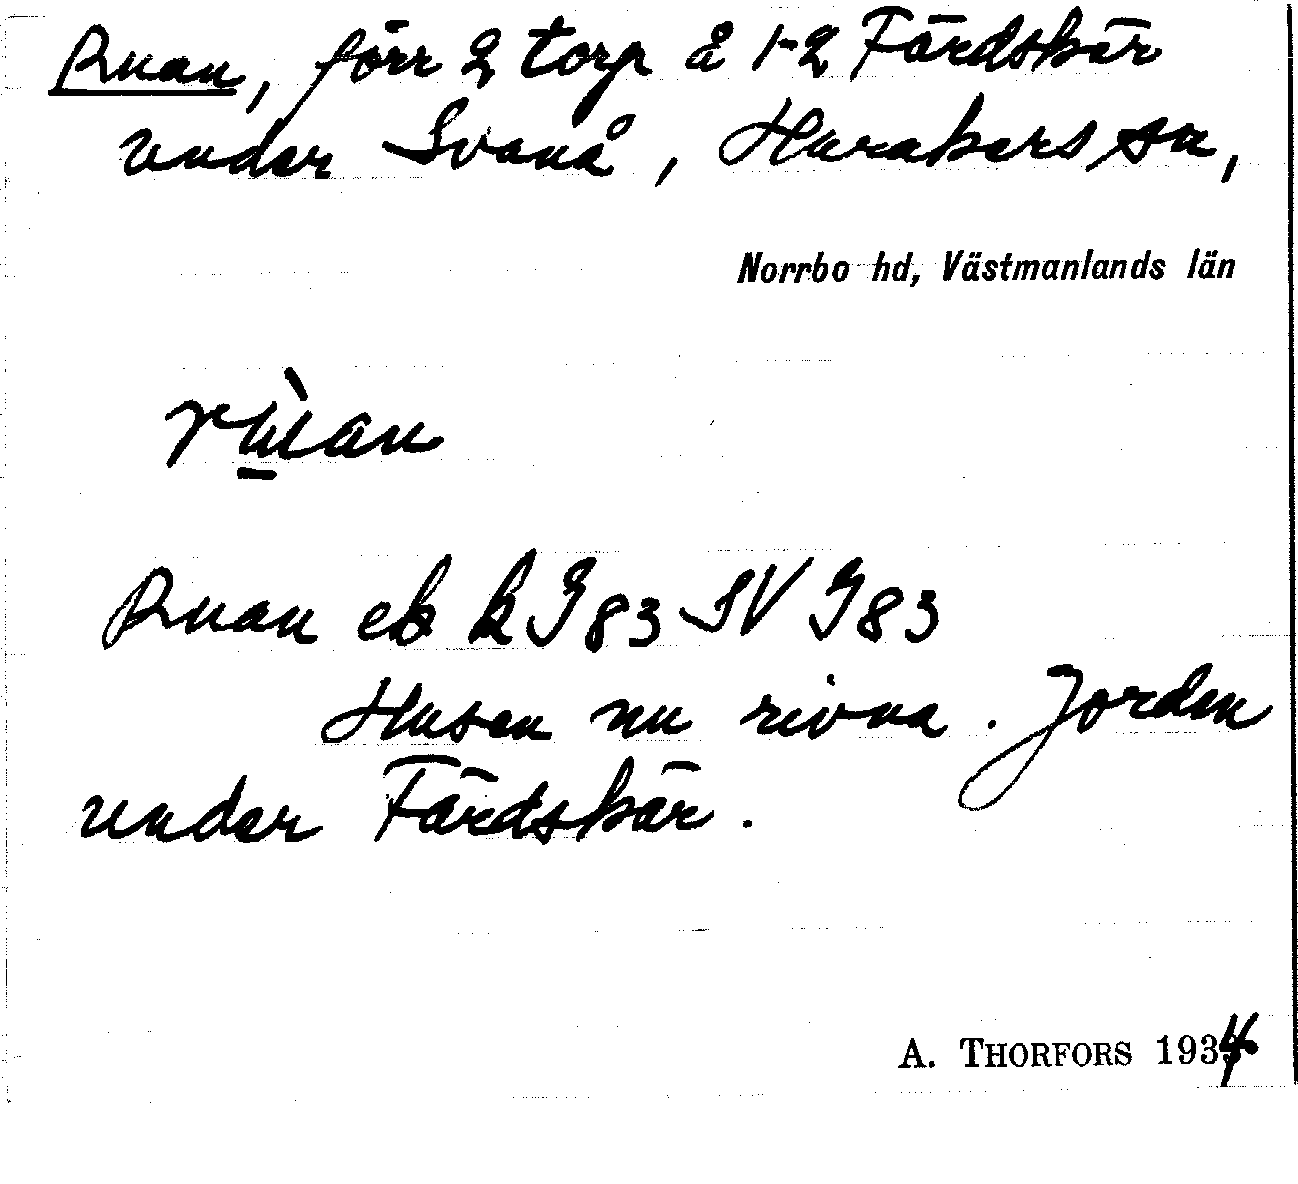 Ruan, förr 2 torp å 1-2 Färdskär
under Svanå, Haraker ssn,
Norrbo hd, Västmanlands län
rùan
Ruan ek k J 83 SV J 83
Husen nu rivna. Jorden
under Färdskär.
A. THORFORS 1934